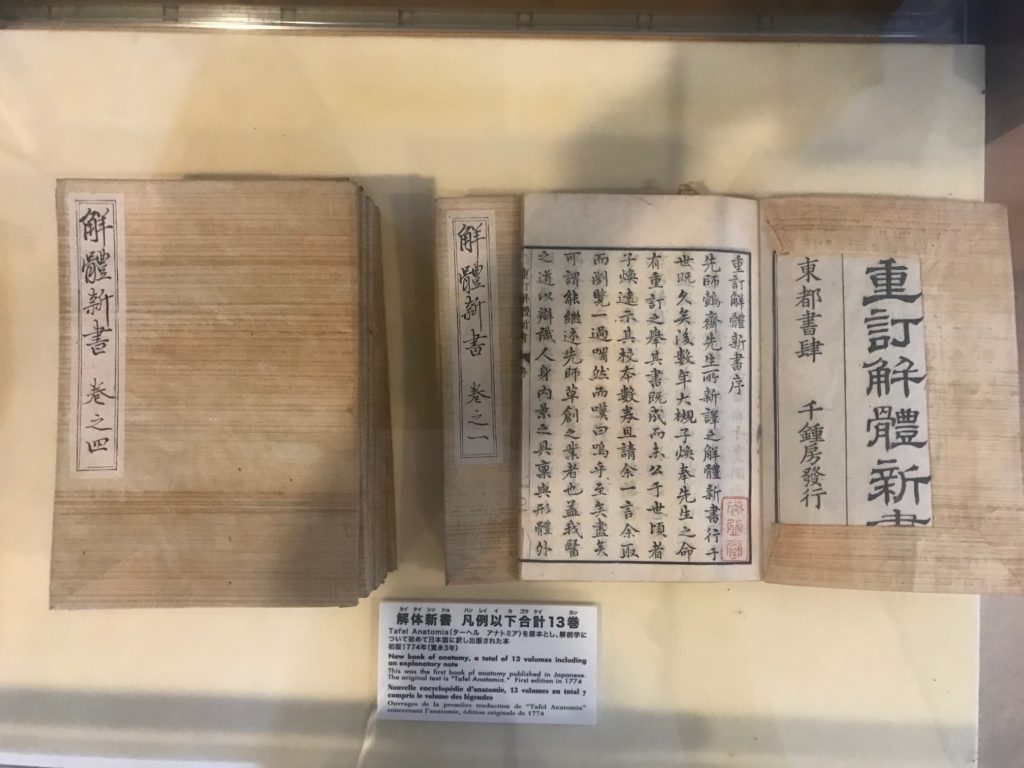 解體新書 卷之四
解體新書 卷之一
重訂解體新書
東都書肆 千鍾房發行
重訂解體新書序
先師鷧齋先生所新譯之解體新書行于
世既久矣後數年大槻子煥奉先生之命
有重訂之擧其書既成而未公于世頃者
子煥遠示其校本數卷且請余一言余亟
而瀏覽一過喟然而嘆曰嗚乎至矣盡矣
可謂能繼述先師草創之業者也蓋我醫
之道以辯識人身內景之具稟與形體外
カイ タイ シン ショ ハン レイ イ カ ゴウ ケイ カン
解体新書 凡例以下合計13巻
Tafel Anatomia(ターヘル アナトミア)を原本とし、解剖学に
ついて初めて日本語に訳し出版された本
初版1774年(寛永3年)
New book of anatomy, a total of 13 volumes including
an explanatory note
This was the first book of anatomy published in Japanese.
The original text is "Tafel Anatomia." First edition in 1774
Nouvelle encyclopédie d'anatomie, 13 volumes au total y
compris le volume des légendes
Ouvrages de la première traduction de "Tafel Anatomia"
concernant l'anatomie, édition originale de 1774